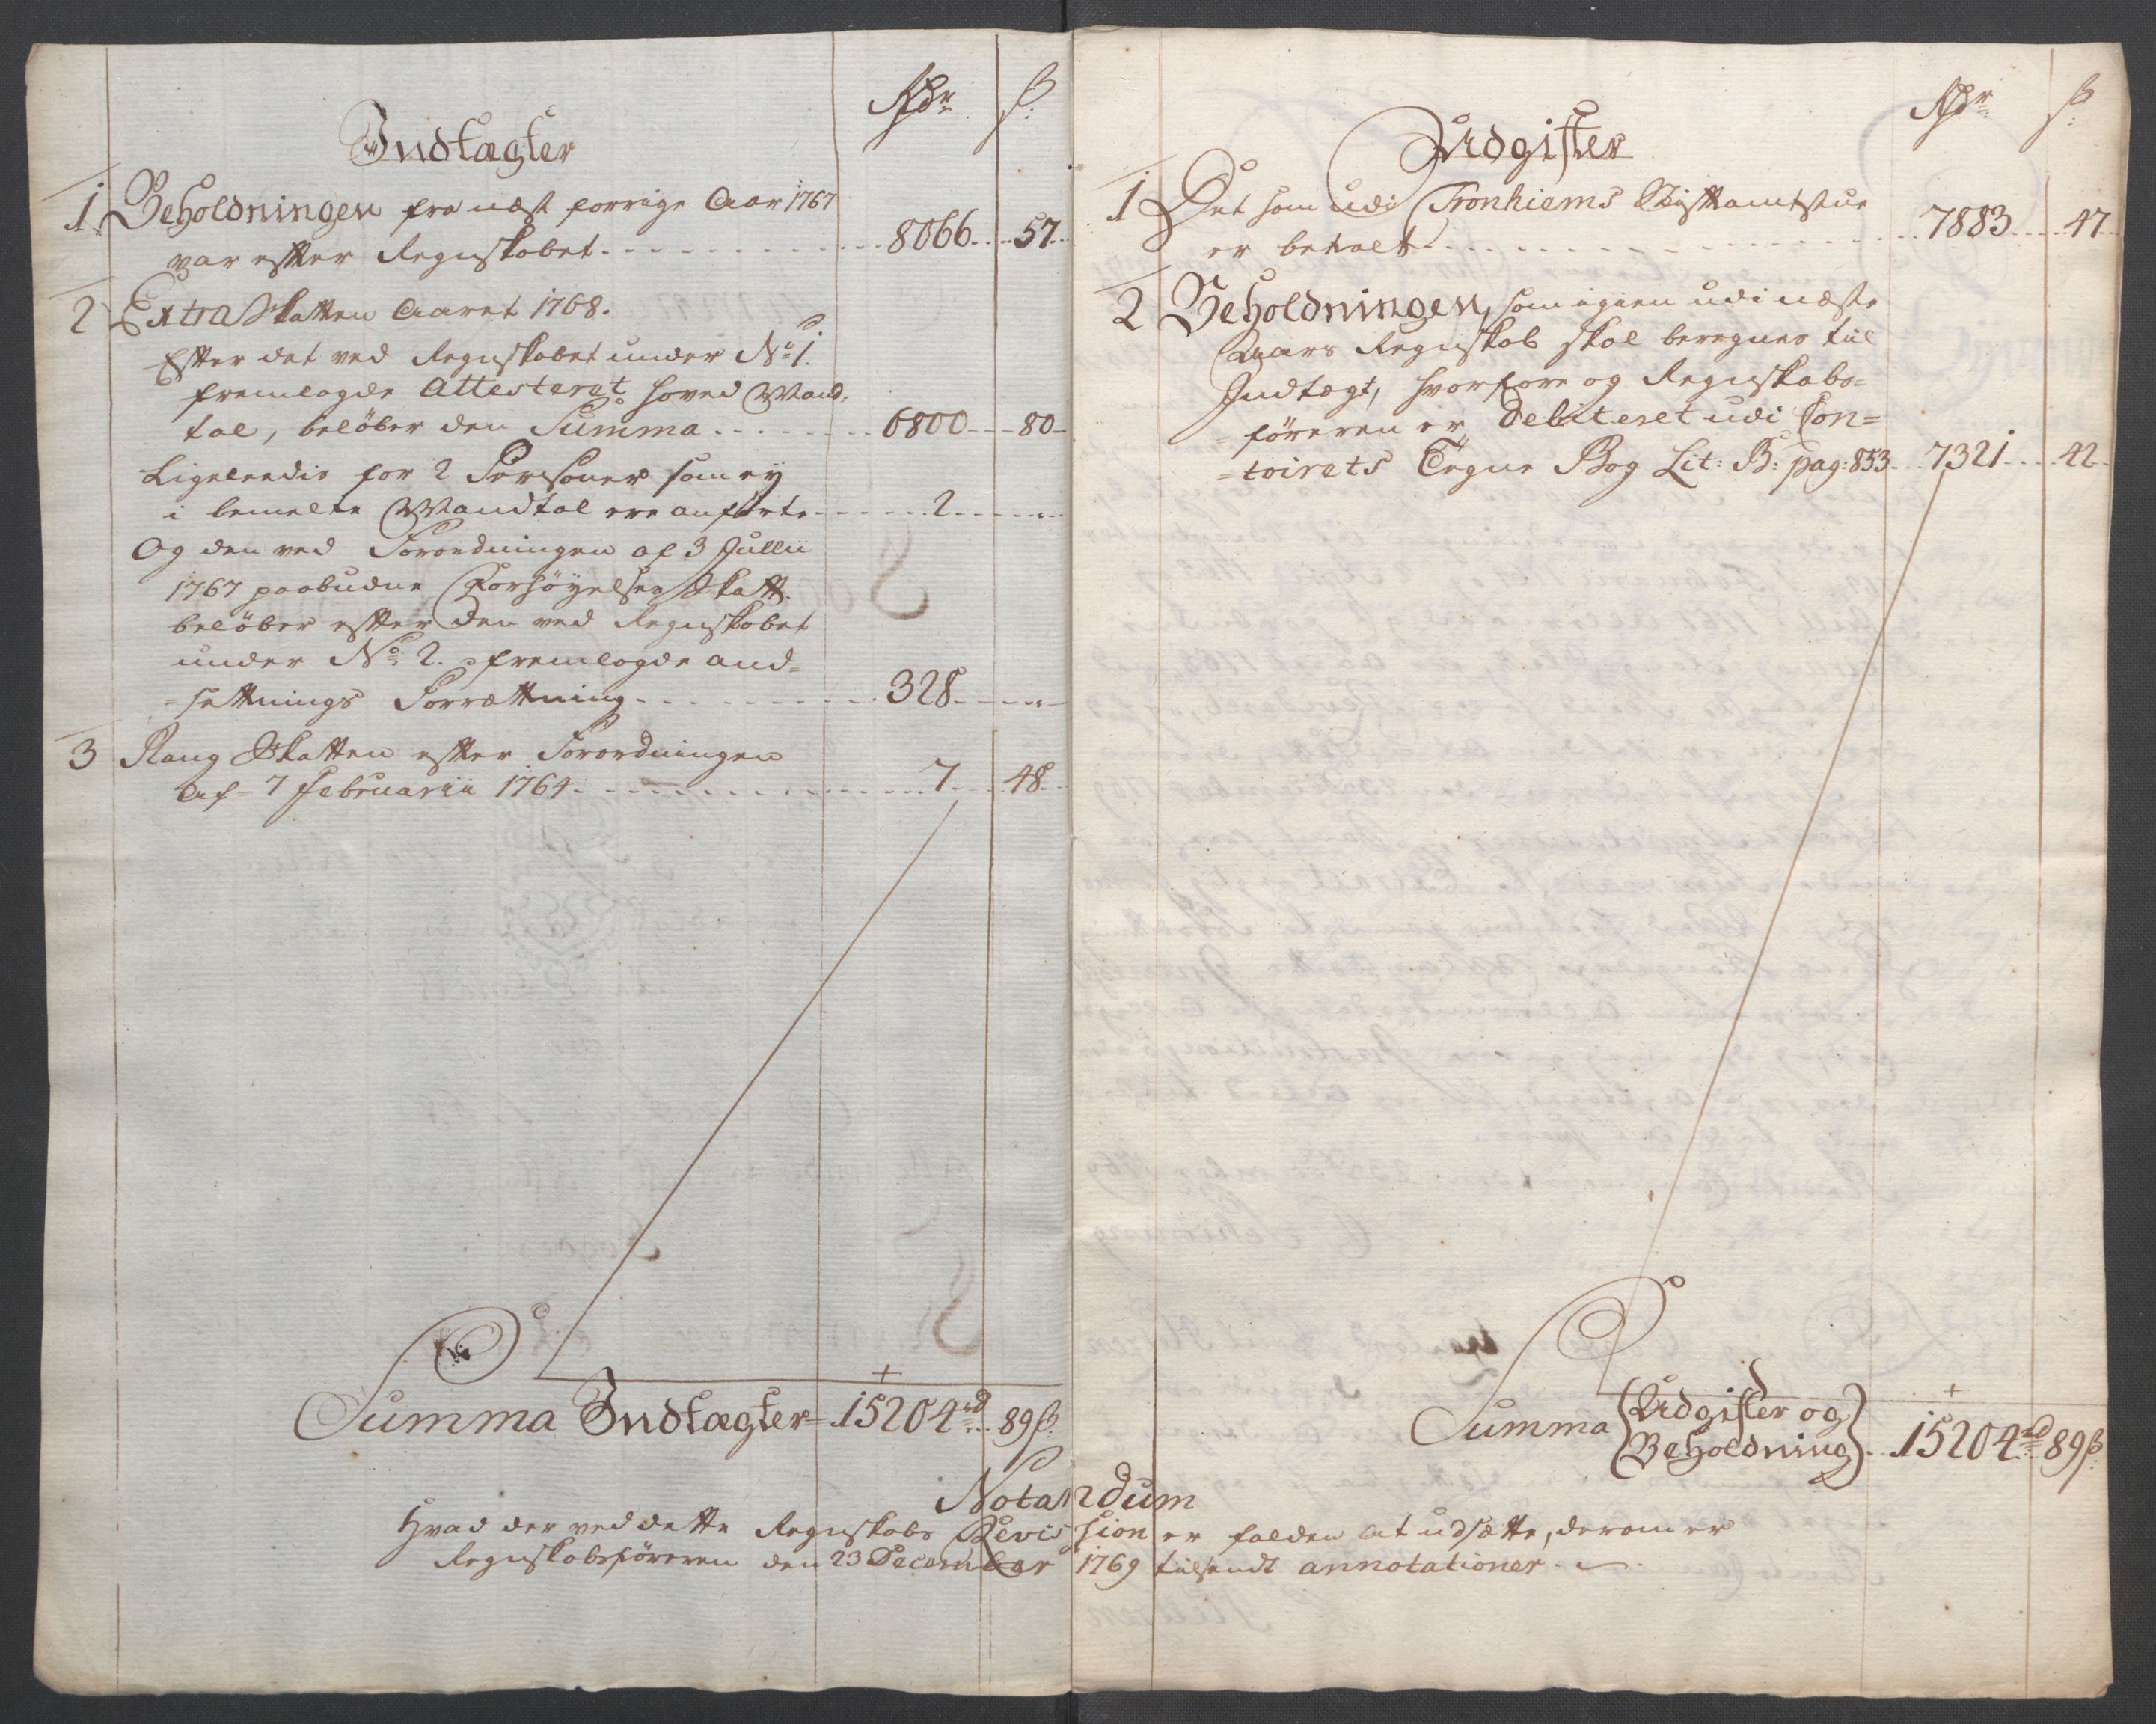 Rdr ß:
Indtægter
1 Beholdningen fra næst forrige Aar 1767
var efter Regnskabet 8066 57
2 Extra Skatten Aaret 1768.
Efter det ved Regnskabet under No: 1.
fremlagde Attesteret hoved Mand-
tal, beløber den Summa 6800 80
Ligeleedis for 2 Persohner som ey
i bemelte Mandtal ere anførte 2
Og den ved Forordningen af 3 Jullii
1767 paabudne Forhøyelses Skatt.
beløber efter den ved Regnskabet
under No: 2. fremlagde and=
=sættnings Forrættning 328
3 Rang Skatten efter Forordningen
af 7 Februarii 1764 7 48
Summa Indtægter 15204rd 89ß
Rdr ß:
Udgifter
1 Det som udi Tronhiems Stiftamtstue
er betalt 7883 47
2 Beholdningen, som igien udi næste
Aars Regnskab skal beregnes til
Indtægt, hvorfore og Regnskabs=
=føreren er debiteret udi Con=
=toirets Tegne Bog Lit: B: pag: 853 7321 42
Summa {Udgifter og
Beholdning} 15204rd 89ß
Notandum
Hvad der ved dette Regnskabs Revision er falden at udsætte, derom er
Regnskabsføreren den 23 December 1769 tilsendt annotationer.